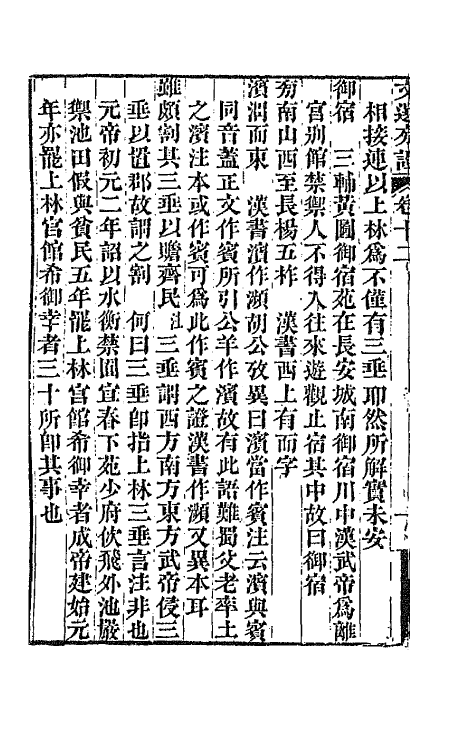 相接連以上林爲不僅有三垂耶然所解實未安
御宿　三輔黃圖御宿苑在長安城南御宿川中漢武帝爲離
宮別館禁禦人不得入往來遊觀止宿其中故曰御宿
旁南山西至長楊五柞　漢書西上有而字
濱渭而東　漢書濱作瀕胡公攷異曰濱當作賓注云濱與賓
同音蓋正文作賓所引公羊作濱故有此語難蜀父老率土
之濱注本或作賓可爲此作賓之證漢書作瀕又異本耳
雖頗割其三垂以贍齊民注三垂謂西方南方東方武帝侵三
垂以置郡故謂之割　何曰三垂卽指上林三垂言注非也
元帝初元二年詔以水衡禁囿宜春下苑少府佽飛外池嚴
籞池田假與貧民五年罷上林宮館希御幸者成帝建始元
年亦罷上林宮館希御幸者三十所卽其事也